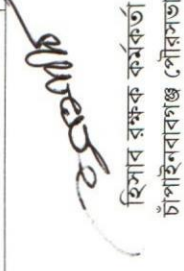 হিসাব রক্ষক কর্মকর্তা
চাঁপাইনবাবগঞ্জ পৌরসভা